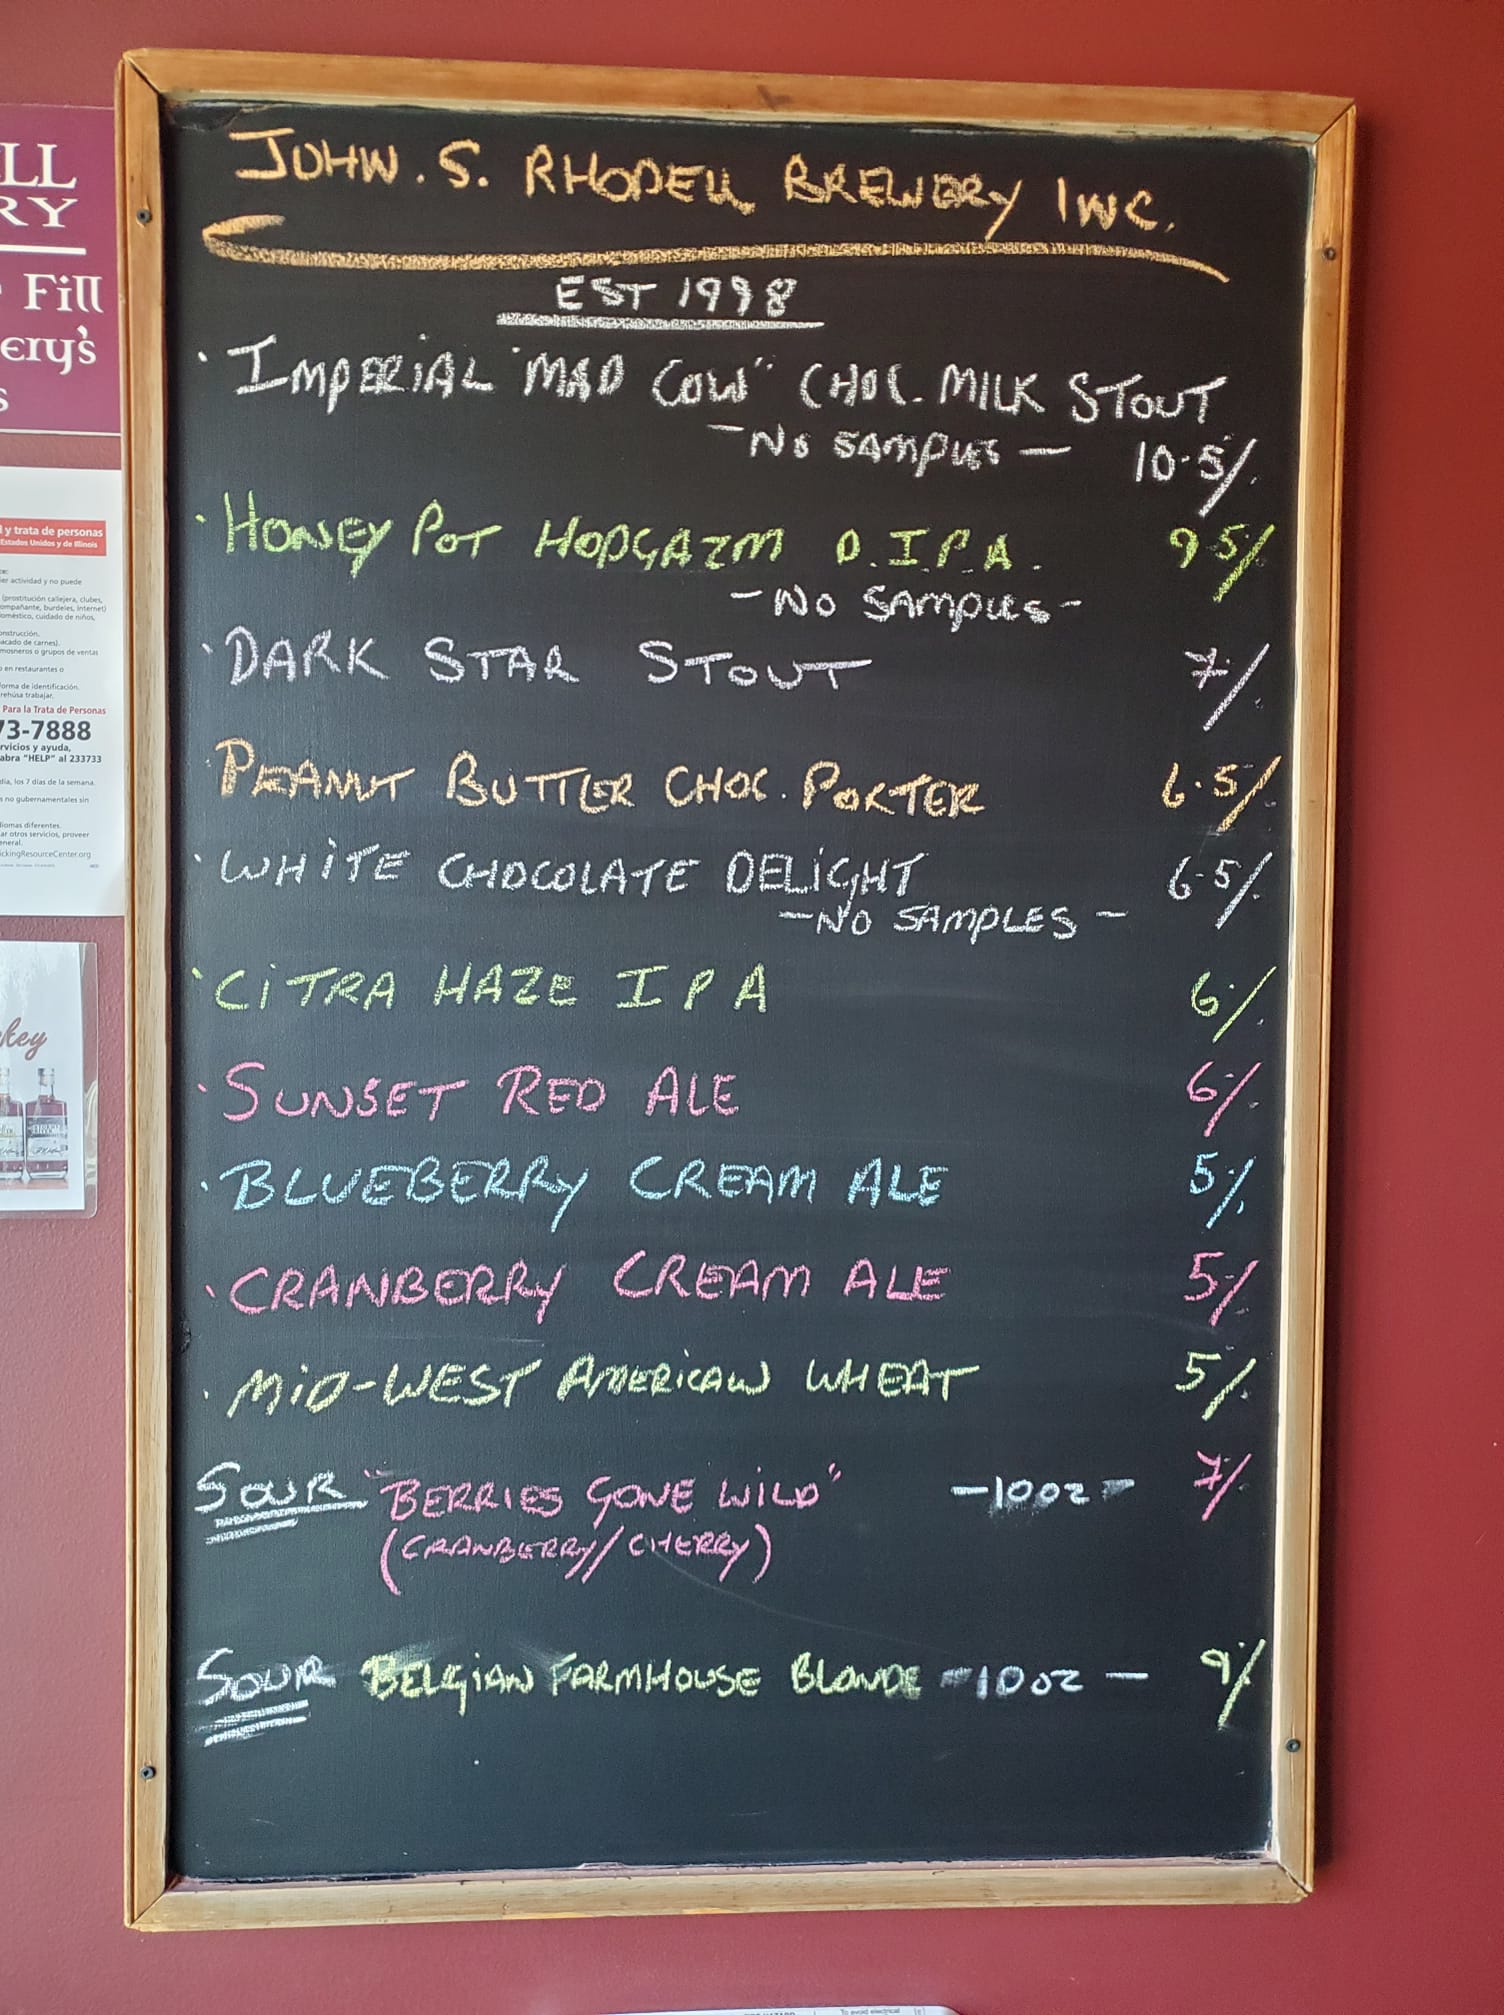 JOHN. S. RHODELL BREWERY INC.
EST 1998
· IMPERIAL "MAD COW" CHOC. MILK STOUT
- NO SAMPLES - 10.5%
· HONEY POT HOPGAZM D.I.P.A. 9.5%
- NO SAMPLES -
· DARK STAR STOUT 7%
· PEANUT BUTTER CHOC. PORTER 6.5%
· WHITE CHOCOLATE DELIGHT 6.5%
- NO SAMPLES -
· CITRA HAZE IPA 6%
· SUNSET RED ALE 6%
· BLUEBERRY CREAM ALE 5%
· CRANBERRY CREAM ALE 5%
· MID-WEST AMERICAN WHEAT 5%
SOUR "BERRIES GONE WILD" - 10oz - 7%
(CRANBERRY/CHERRY)
SOUR BELGIAN FARMHOUSE BLONDE - 10oz - 9%
LL
RY
Fill
ery's
s
l y trata de personas
Estados Unidos y de Illinois
er actividad y no puede
(prostitución callejera, clubes,
ompañante, burdeles, Internet)
oméstico, cuidado de niños,
onstrucción.
acado de carnes).
mosneros o grupos de ventas
o en restaurantes o
orma de identificación.
rehúsa trabajar.
Para la Trata de Personas
73-7888
rvicios y ayuda,
abra "HELP" al 233733
día, los 7 días de la semana.
s no gubernamentales sin
iomas diferentes.
ar otros servicios, proveer
eneral.
ickingResourceCenter.org
key
To avoid electrical